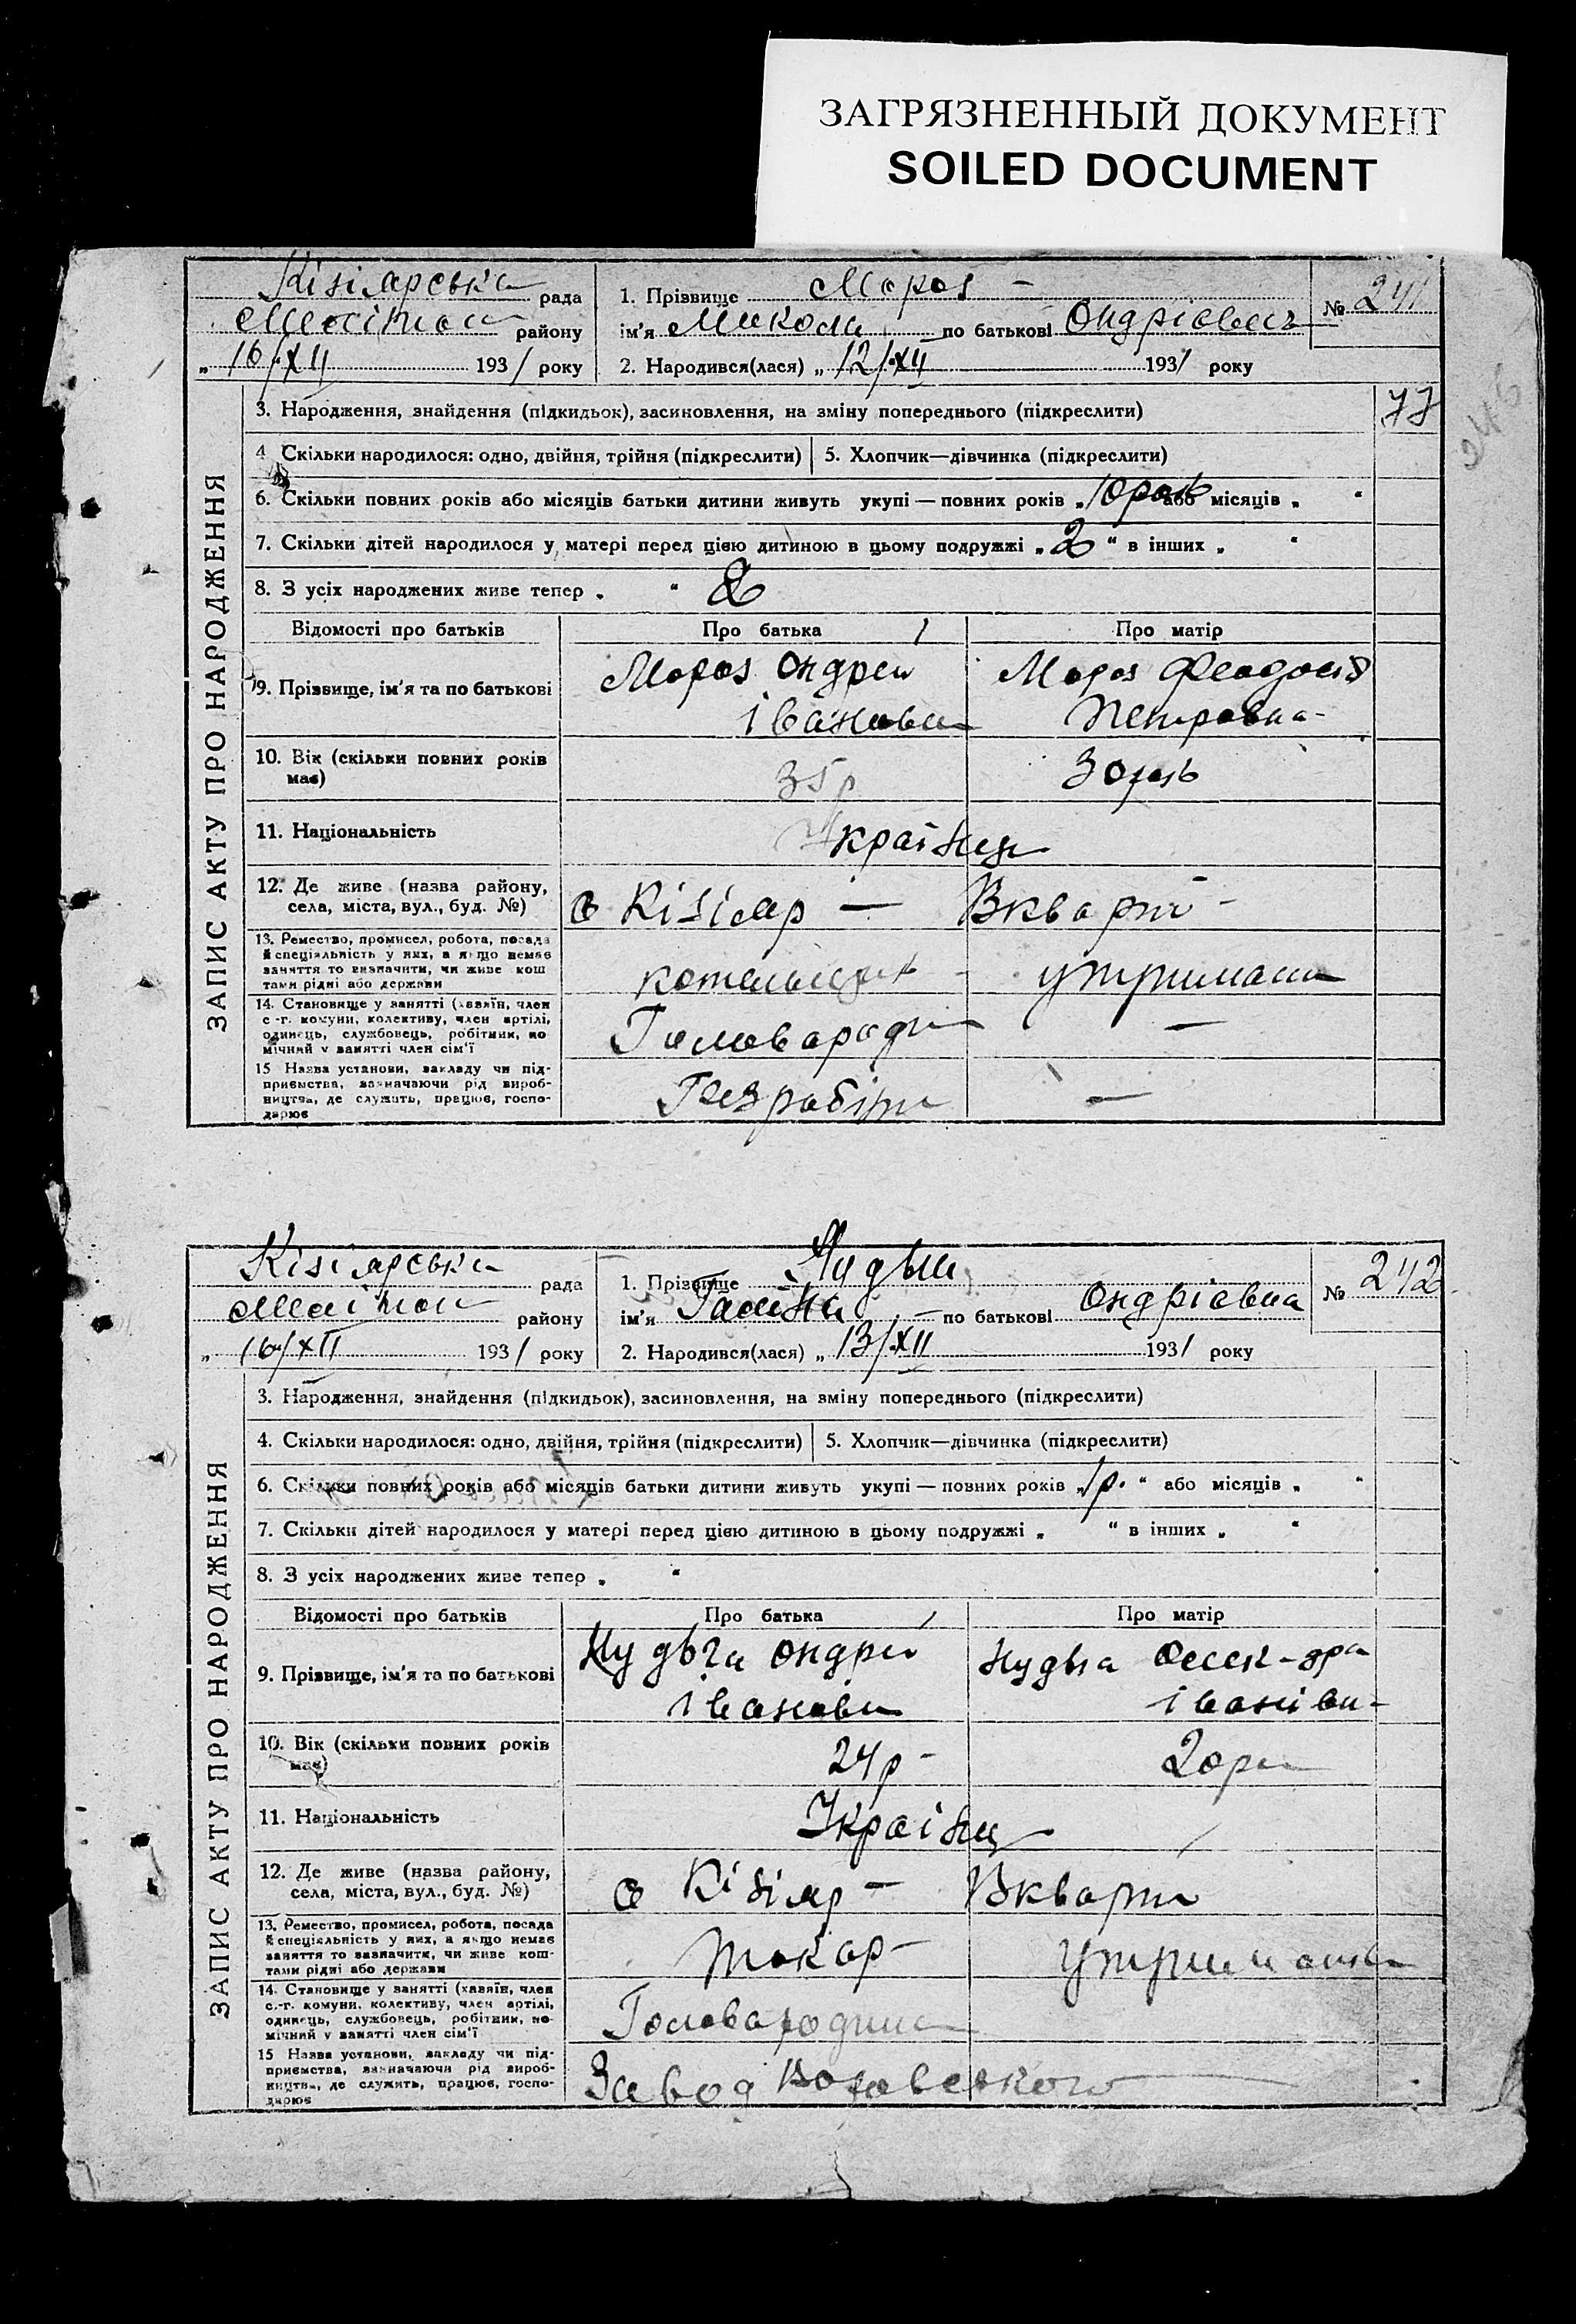 ЗАГРЯЗНЕННЫЙ ДОКУМЕНТ
SOILED DOCUMENT
Кізіярська рада
району
„ 16/XII 1931 року
1. Прізвище Мороз
ім'я Микола по батькові Ондріевич
№ 241
2. Народився(лася) „ 12/XII 1931 року
246
ЗАПИС АКТУ ПРО НАРОДЖЕННЯ
3. Народження, знайдення (підкидьок), засиновлення, на зміну попереднього (підкреслити)
77
4 Скільки народилося: одно, двійня, трійня (підкреслити) 5. Хлопчик—дівчинка (підкреслити)
6. Скільки повних років або місяців батьки дитини живуть укупі — повних років „ 10 рок або місяців „ “
7. Скільки дітей народилося у матері перед цією дитиною в цьому подружжі „ 2 “ в інших „ “
8. З усіх народжених живе тепер „ “ 2
Відомості про батьків Про батька Про матір
9. Прізвище, ім'я та по батькові Мороз Ондрей Мороз Феодосія
Іванови Петровна
10. Вік (скільки повних років
має)
35 р 30 рок
11. Національність Українці
12. Де живе (назва району,
села, міста, вул., буд. №)
с Кізіяр — Вкварт
13. Ремество, промисел, робота, посада
й спеціяльність у них, а якщо немає
заняття то визначити, чи живе кош
тами рідні або держави
утриманн
14. Становище у занятті (хазяїн, член
с-г. комуни, колективу, член артілі,
одинець, службовець, робітник, по
мічний у занятті член сім'ї
Голова роди —
15 Назва установи, закладу чи під-
приємства, зазначаючи рід вироб-
ництва, де служить, працює, госпо-
дарює
Безробітн —
Кізіярська рада
району
„ 16/XII 1931 року
1. Прізвище Нудьга
ім'я Галина по батькові Ондріевна
№ 242
2. Народився(лася) „ 13/XII 1931 року
ЗАПИС АКТУ ПРО НАРОДЖЕННЯ
3. Народження, знайдення (підкидьок), засиновлення, на зміну попереднього (підкреслити)
4. Скільки народилося: одно, двійня, трійня (підкреслити) 5. Хлопчик—дівчинка (підкреслити)
6. Скільки повних років або місяців батьки дитини живуть укупі — повних років „ 1 р. “ або місяців „ “
7. Скільки дітей народилося у матері перед цією дитиною в цьому подружжі „ “ в інших „ “
8. З усіх народжених живе тепер „ “
Відомості про батьків Про батька Про матір
9. Прізвище, ім'я та по батькові Нудьга Ондрій Нудьга Олек-дра
Іванови Іванівн
10. Вік (скільки повних років
має)
24 р 20 рок
11. Національність Українц
12. Де живе (назва району,
села, міста, вул., буд. №)
с Кізіяр — Вкварт
13. Ремество, промисел, робота, посада
й спеціяльність у них, а якщо немає
заняття то зазначити, чи живе кош-
тами рідні або держави
Токар утриманн
14. Становище у занятті (хазяїн, член
с.-г. комуни, колективу, член артілі,
одинець, службовець, робітник, по-
мічний у занятті член сім'ї
Голова родини
15 Назва установи, закладу чи під-
приємства, зазначаючи рід вироб-
ництва, де служить, працює, госпо-
дарює
Завод